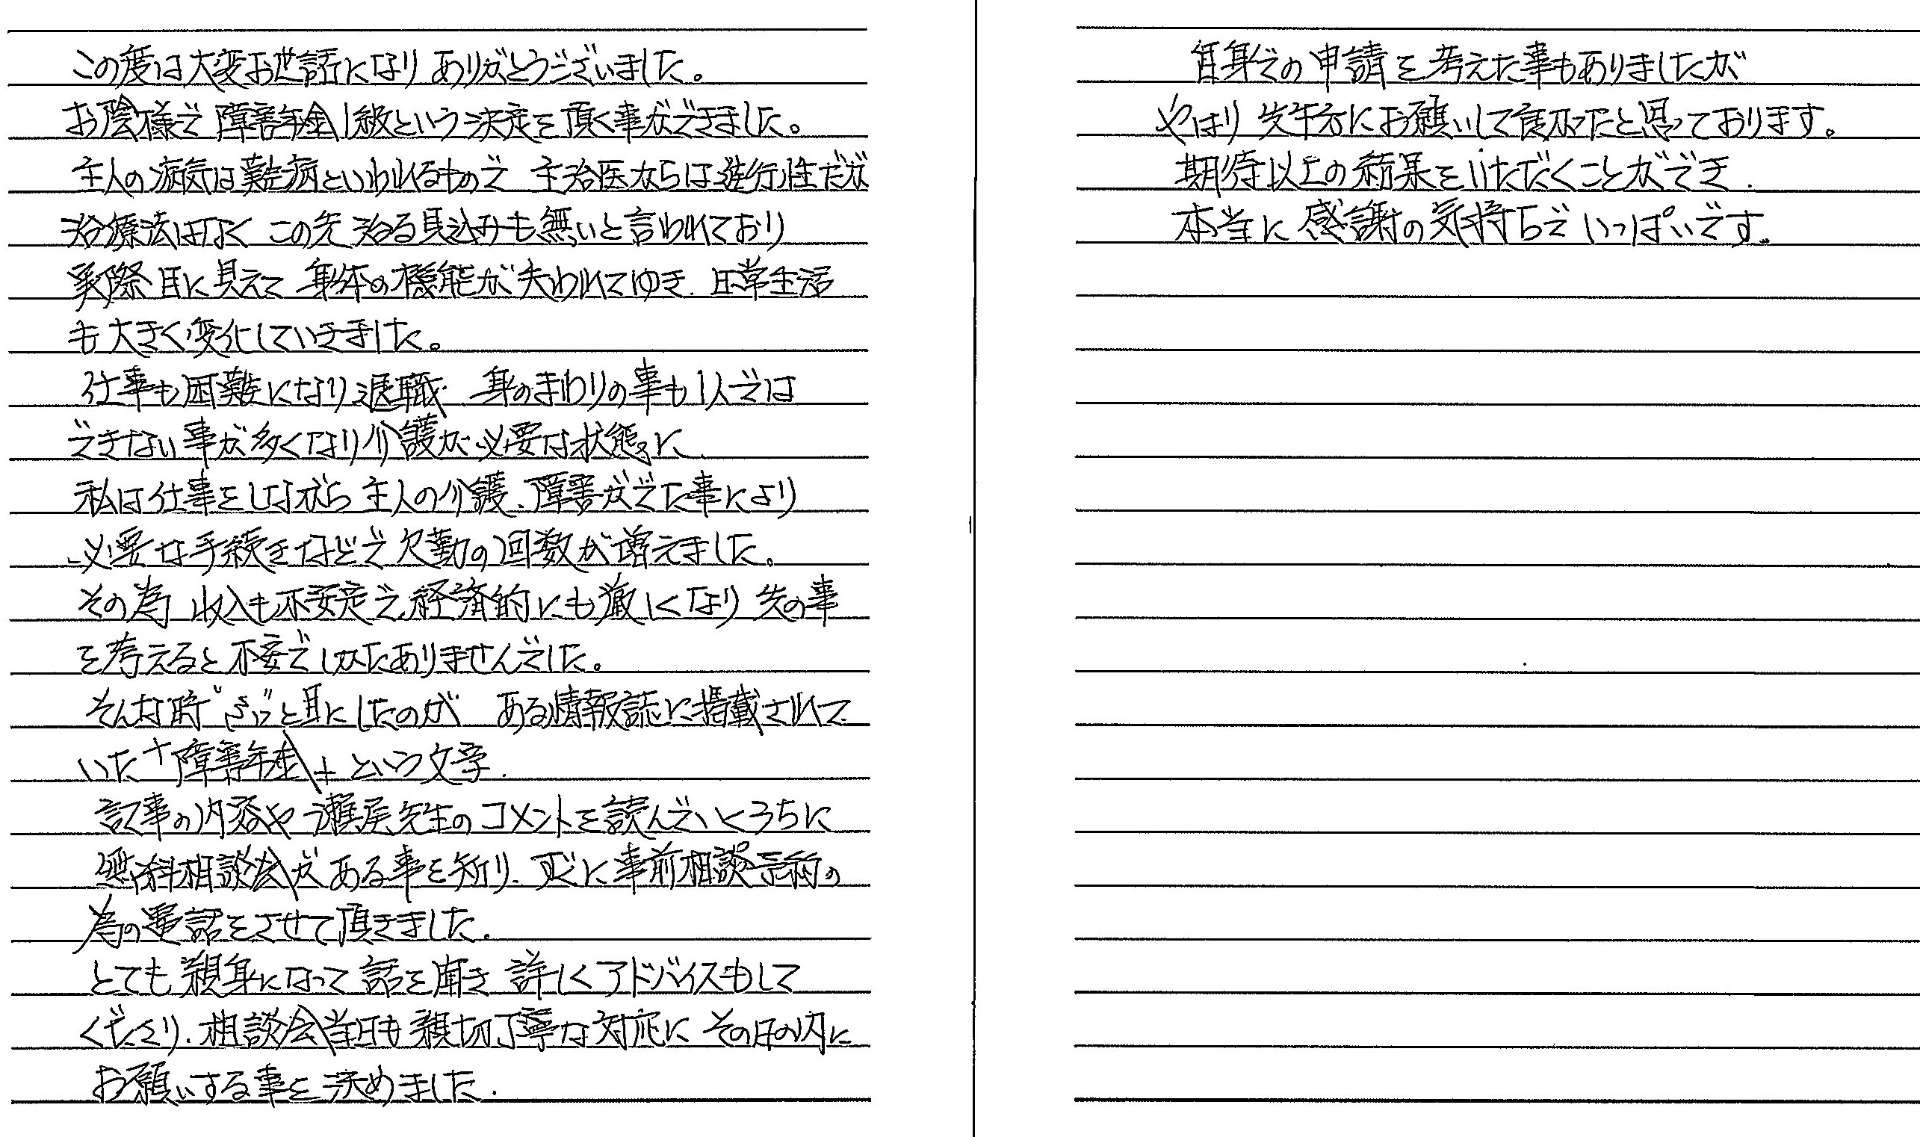 この度は大変お世話になりありがとうございました。
お陰様で障害年金1級という決定を頂く事ができました。
主人の病気は難病といわれるもので 主治医からは進行性だが
治療法はなく この先治る見込みも無いと言われており
実際目に見えて身体の機能が失われてゆき、日常生活
も大きく変化していきました。
仕事も困難になり退職、身のまわりの事も1人では
できない事が多くなり介護が必要な状態に
私は仕事をしながら主人の介護、障害がでた事により
必要な手続きなどで欠勤の回数が増えました。
その為 収入も不安定で、経済的にも厳しくなり 先の事
を考えると不安でしかたありませんでした。
そんな時"ふ"と耳にしたのが ある情報誌に掲載されて
いた"障害年金"という文字。
記事の内容や瀬尾先生のコメントを読んでいくうちに
無料相談会がある事を知り、すぐに事前相談予約の
為の電話をさせて頂きました。
とても親身になって話を聞き 詳しくアドバイスもして
くださり、相談会当日も親切丁寧な対応に その日の内に
お願いする事を決めました。
自身での申請を考えた事もありましたが
やはり先生方にお願いして良かったと思っております。
期待以上の結果をいただくことができ、
本当に感謝の気持ちでいっぱいです。